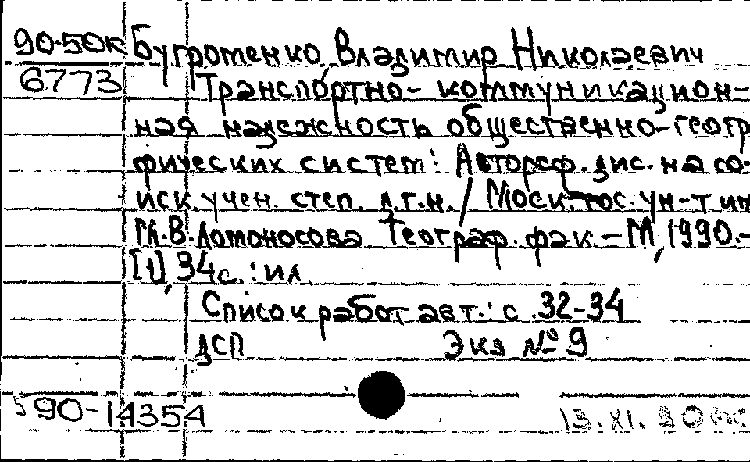 90-50к Бугроменко, Владимир Николаевич
6773 Транспортно-коммуникацион-
ная надежность общественно-геогр
фических систем: Автореф. дис. на со-
иск. учен. степ. д.г.н. / Моск. гос. ун-т им
М.В.Ломоносова Географ. фак. - М, 1990.-
[1], 34 с. : ил
Список работ авт.: с 32-34
ДСП Экз № 9
590-14354 13. XI. 90